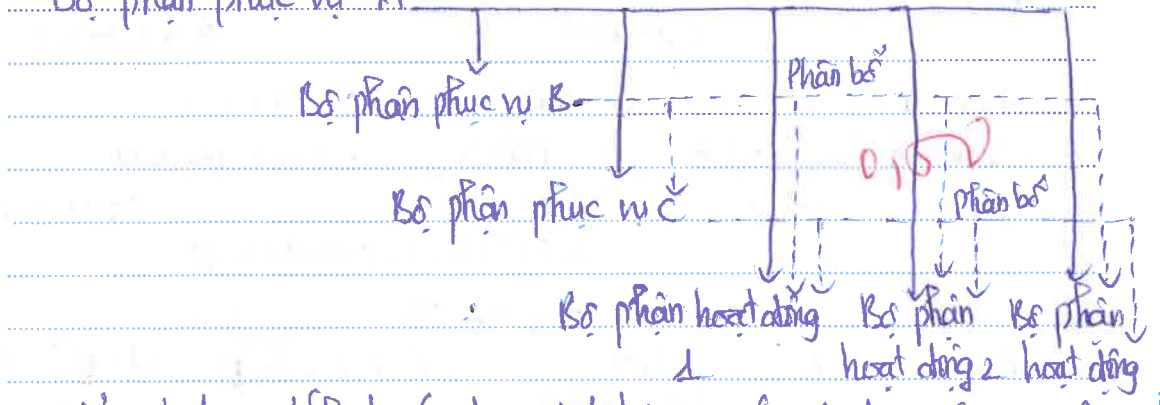 Bộ phận phục vụ A
Phân bổ
Bộ phận phục vụ B
0,5
Phân bổ
Bộ phận phục vụ C
Bộ phận hoạt động Bộ phận Bộ phận
1 hoạt động 2 hoạt động